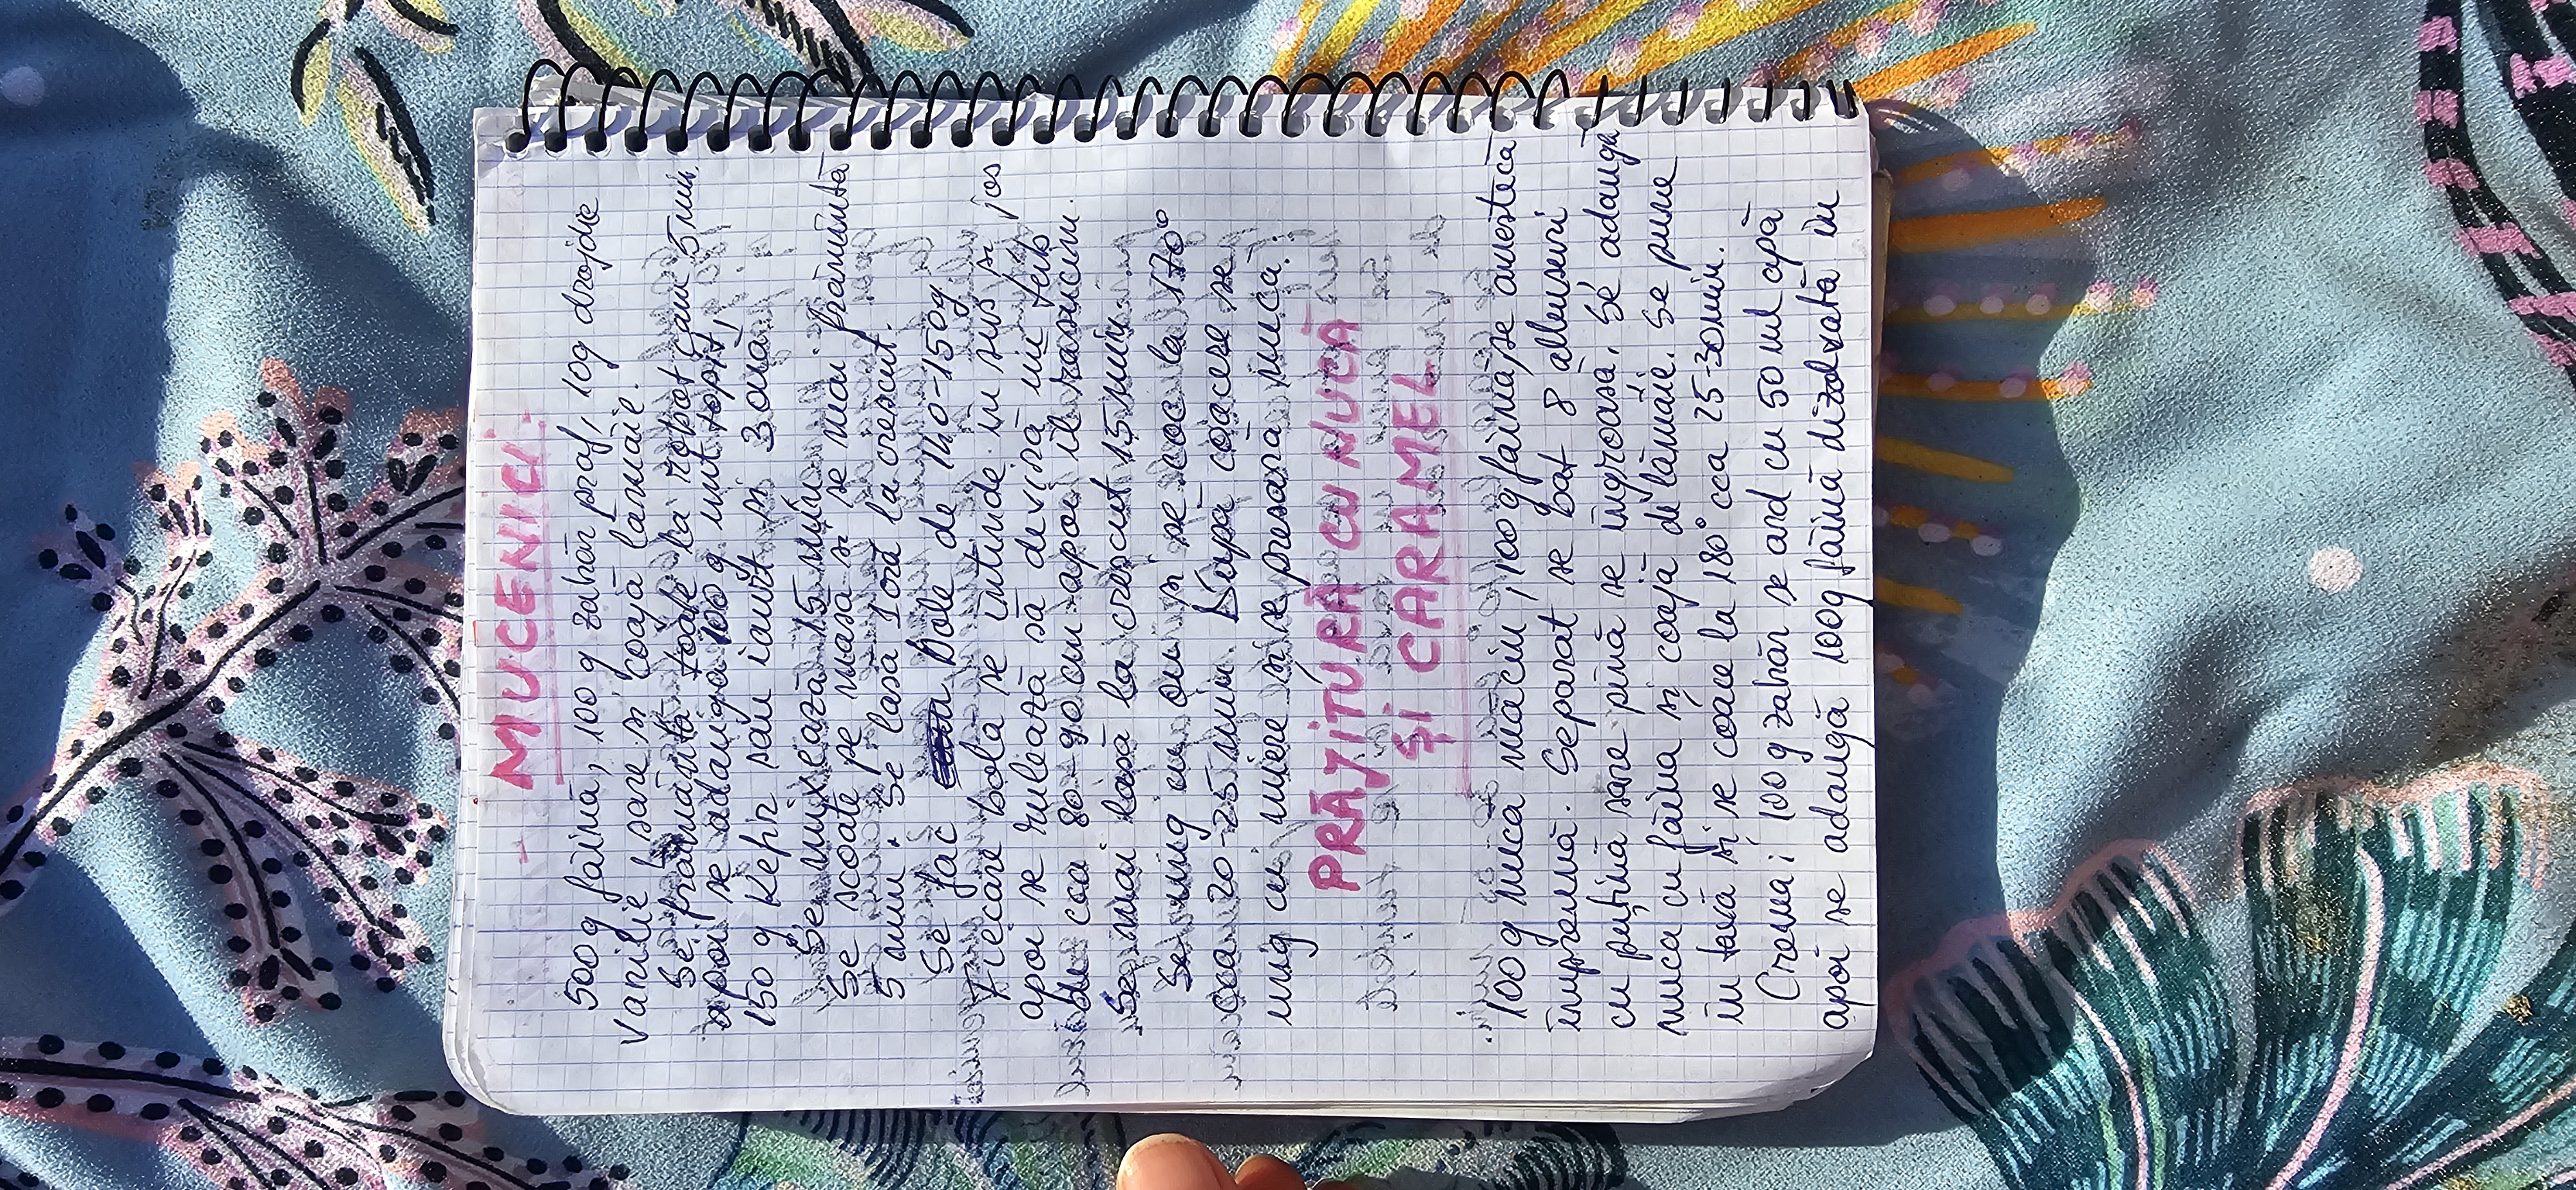 - MUCENICI -
500 g făină, 100 g zahăr praf, 10g drojdie
Vanilie, sare și coajă lămâie.
Se frământă toate la robot cam 5 min.
apoi se adauga 100 g unt topit,
150 g Kefir sau iaurt și 3 ouă
Se mixează 15 min
Se scoate pe masă și se mai frămîntă
5 min. Se lasă 1 oră la crescut.
Se fac bole de 140-150g.
Fiecare bolă se întinde în sus și jos
apoi se rulează să devină un tub
de cca 80-90 cm apoi îl răsucim.
Se mai lasă la crescut 15 min
Se ung cu ou și se coc la 170°
cca 20-25 min. După coacere se
ung cu miere și se presară nuca.
PRĂJITURĂ CU NUCĂ
ȘI CARAMEL
100 g nucă măcin, 100 g făină, se amestecă
împreună. Separat se bat 8 albușuri
cu puțină sare pînă se îngroașă. Se adaugă
nuca cu făina și coajă de lămâie. Se pune
în tavă și se coace la 180° cca 25-30 min.
Crema: 100 g zahăr se ard cu 50 ml apă
apoi se adaugă 100g făină dizolvată în